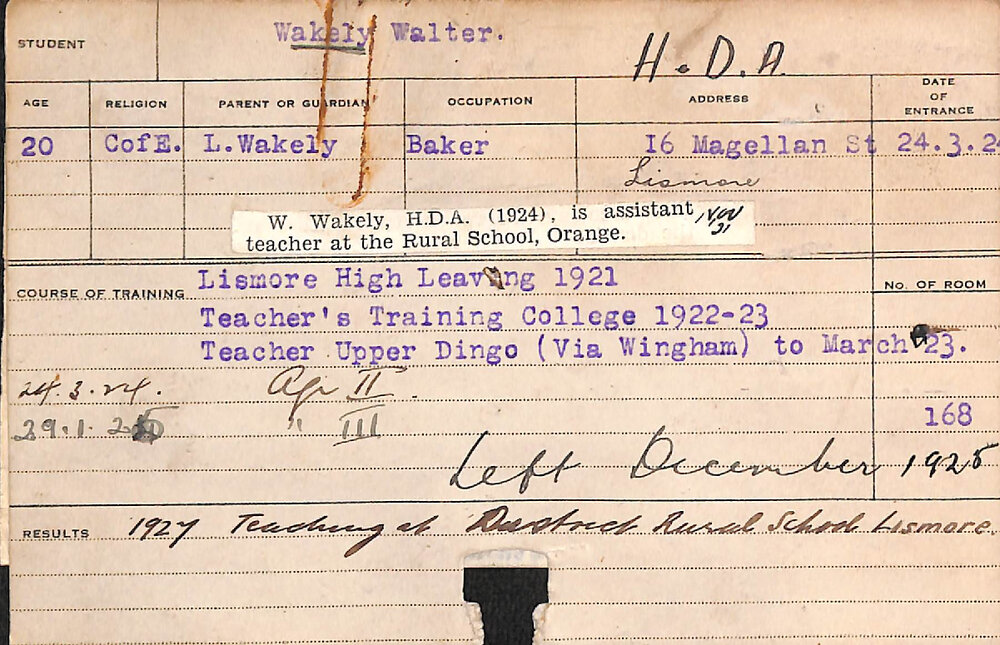 STUDENT Wakely Walter.
H.D.A.
AGE RELIGION PARENT OR GUARDIAN OCCUPATION ADDRESS DATE OF ENTRANCE
20 CofE. L.Wakely Baker 16 Magellan St 24.3.24
Lismore
W. Wakely, H.D.A. (1924), is assistant
teacher at the Rural School, Orange.
COURSE OF TRAINING Lismore High Leaving 1921 No. OF ROOM
Teacher's Training College 1922-23
Teacher Upper Dingo (Via Wingham) to March 23.
24.3.24. Ag II.
29.1.25 " III 168
Left December 1925
RESULTS 1927 Teaching at District Rural School Lismore.